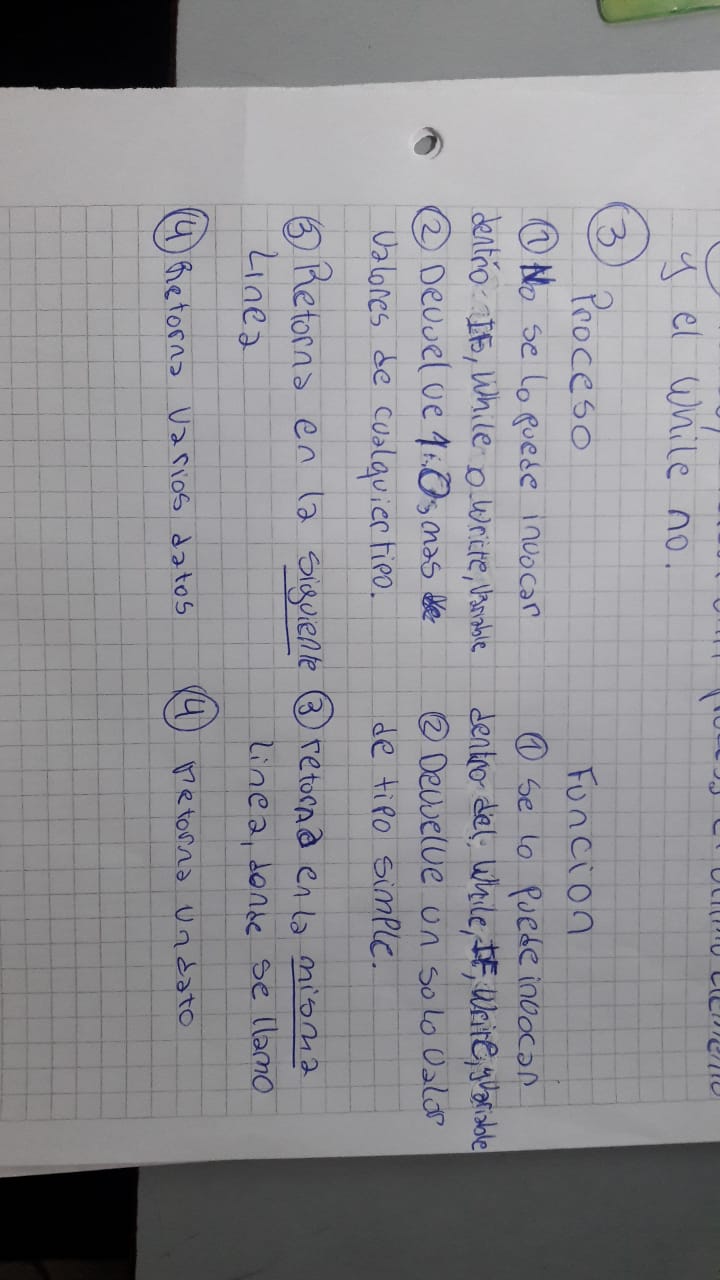 proceso el ultimo elemento
y el While no.
3
Proceso
Funcion
1 No se lo puede invocar
dentro IF, While o Write, Variable
2 Devuelve 1 o mas de
Valores de cualquier tipo.
3 Retorna en la siguiente
Linea
4 Retorna varios datos
1 Se lo puede invocar
dentro del: While, IF, Write, y Variable
2 Devuelve un solo valor
de tipo simple.
3 retorna en la misma
linea, donde se llamo
4 retorna un dato